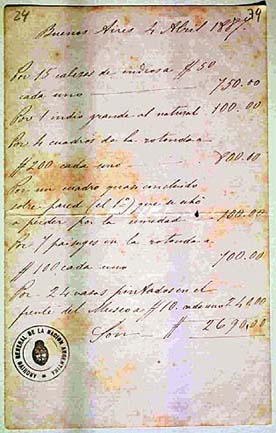 24
74
Buenos Aires 4 Abril 18
Por 15 cabezas de indios a $ 50
cada uno 750.00
Por 1 indio grande al natural 100.00
Por 4 cuadros de la rotonda a
$ 200 cada uno 800.00
Por un cuadro quasi concluido
sobre pared (el 1º) que se echó
a perder por la umedad 100.00
Por 7 paisages en la rotonda a
$ 100 cada uno 700.00
Por 24 vasos pintados en el
frente del Museo a $ 10. cada uno 240.00
Son $ 2690.00
ARCHIVO GENERAL DE LA NACION ARGENTINA